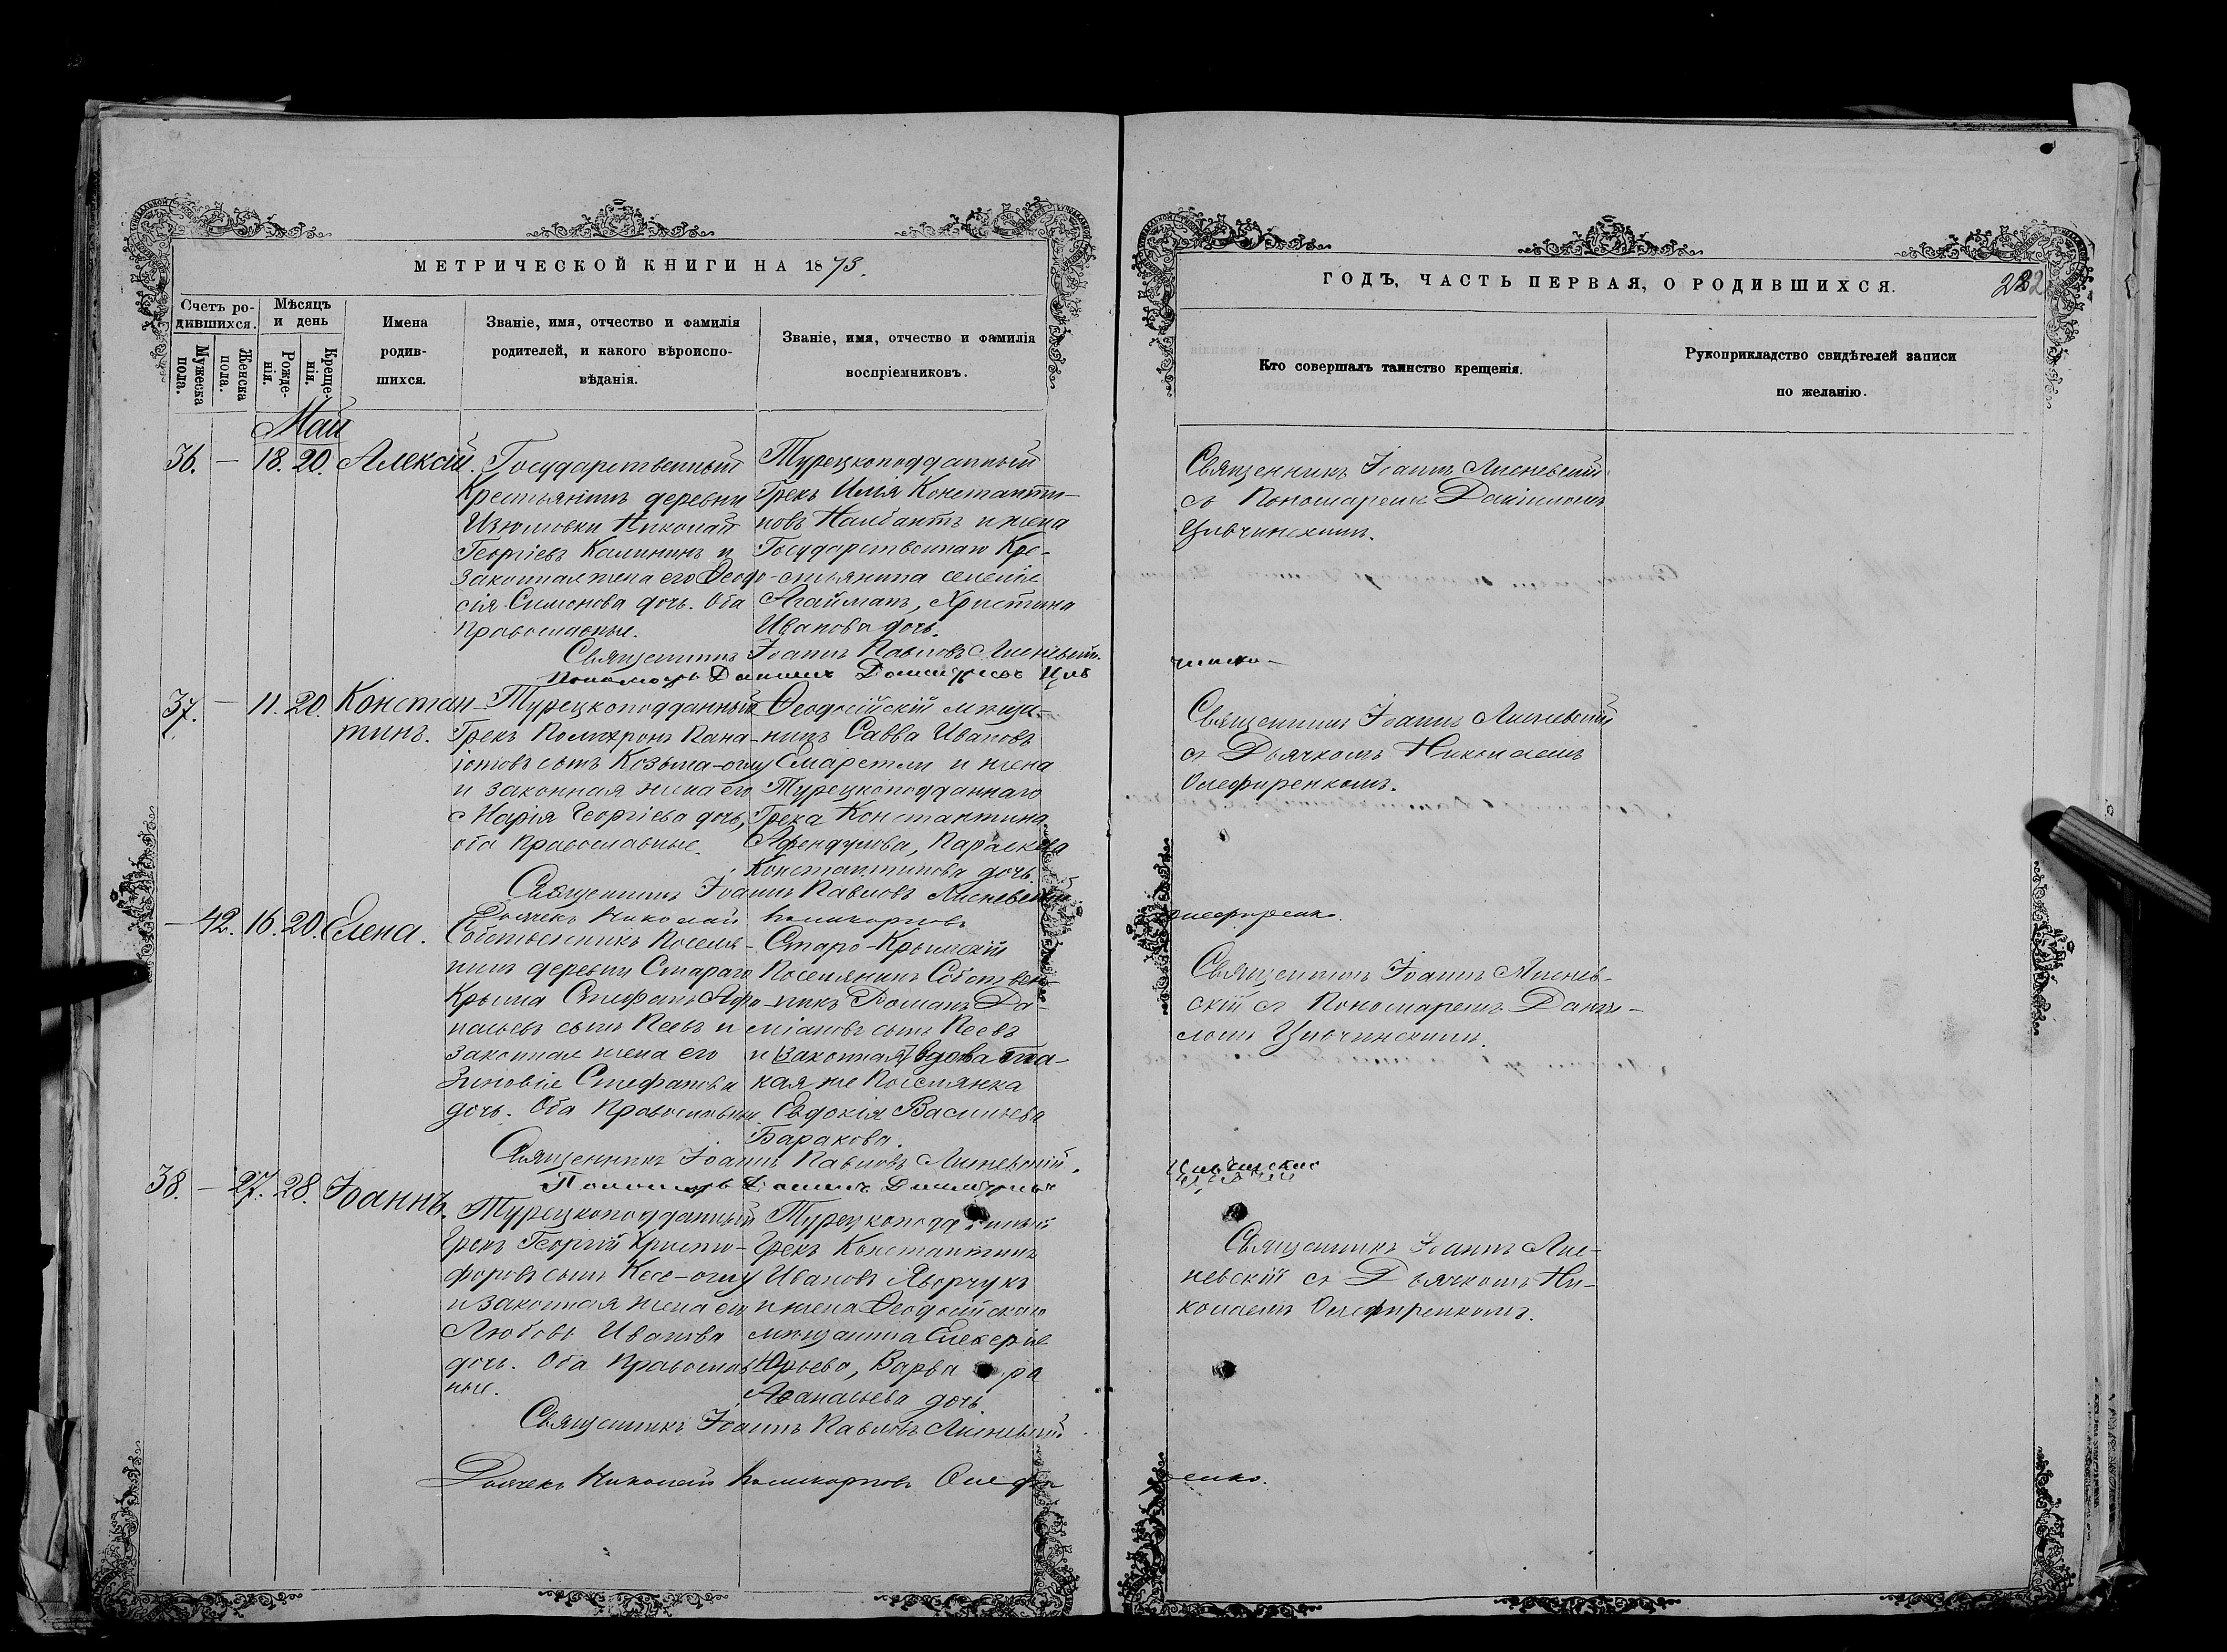 МЕТРИЧЕСКОЙ КНИГИ НА 1873.
Счетъ ро-
дившихся.
Мужеска пола.
Женска пола.
Мѣсяцъ
и день
Рожде-
нія.
Креще-
нія.
Имена
родив-
шихся.
Званіе, имя, отчество и фамилія
родителей, и какого вѣроиспо-
вѣданія.
Званіе, имя, отчество и фамилія
воспріемниковъ.
Май
36. — 18. 20. Алексій.
Государственный
Крестьянинъ деревни
Изюмовки Николай
Георгіевъ Калининъ и
законная жена его Ѳеодо-
сія Симонова дочь. Оба
Православные.
Турецкоподданный
Грекъ Илія Константи-
новъ Налбантъ и жена
Государственнаго Кре-
стьянина селенія
Агайманъ, Христина
Иванова дочь.
Священникъ Іоаннъ Павловъ Лисневскій.
Пономарь Даніилъ Димитріевъ Цыв
37. — 11. 20. Констан-
тинъ.
Турецкоподданный
Грекъ Полихронъ Пана-
іотовъ сынъ Козьма-оглу
и законная жена его
Марія Георгіева дочь,
оба Православные.
Ѳеодосійскій мѣща-
нинъ Савва Ивановъ
Смаретли и жена
Турецкоподданнаго
Грека Константина
Афендулова, Параскева
Константинова дочь.
Священникъ Іоаннъ Павловъ Лисневскій
Дьячекъ Николай Поликарповъ
— 42. 16. 20. Елена.
Собственникъ Поселя-
нинъ деревни Стараго
Крыма Стефанъ Афа-
насьевъ сынъ Пеевъ и
законная жена его
Зиновія Стефанова
дочь. Оба Православны
Старо-Крымскій
Поселянинъ Собствен-
никъ Романъ Да-
міановъ сынъ Пеевъ
и законная вдова та-
кая же Поселянка
Евдокія Васильева
Баракова.
Священникъ Іоаннъ Павловъ Лисневскій.
Пономарь Даніилъ Димитріевъ
38. — 27. 28. Іоаннъ.
Турецкоподданный
Грекъ Георгій Христо-
форовъ сынъ Кесе-оглу
и законная жена его
Любовь Иванова
дочь. Оба Православ
ные.
Турецкоподданный
Грекъ Константинъ
Ивановъ Яворчукъ
и жена Ѳеодосійскаго
мѣщанина Елевферія
Юрьева, Варвара
Аѳанасьева дочь.
Священникъ Іоаннъ Павловъ Лисневскій
Дьячекъ Николай Поликарповъ Олефи
ГОДЪ, ЧАСТЬ ПЕРВАЯ, О РОДИВШИХСЯ.
Кто совершалъ таинство крещенія.
Рукоприкладство свидѣтелей записи
по желанію.
Священникъ Іоаннъ Лисневскій
съ Пономаремъ Даніиломъ
Цывчинскимъ.
Священникъ Іоаннъ Лисневскій
съ Дьячкомъ Николаемъ
Олефиренкомъ.
Олефиренко.
Священникъ Іоаннъ Лиснев-
скій съ Пономаремъ Дании-
ломъ Цывчинскимъ.
Священникъ Іоаннъ Лис-
невскій съ Дьячкомъ Ни-
колаемъ Олефиренкомъ.
ренко.